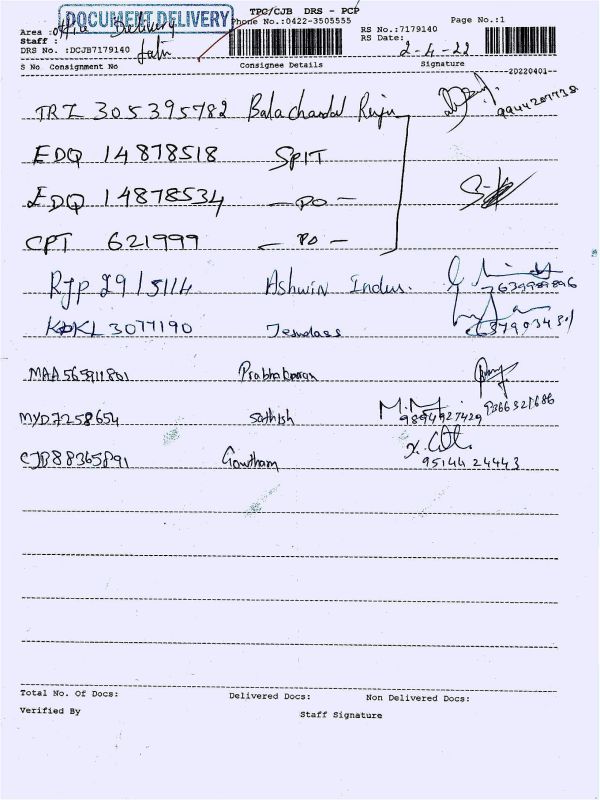 DOCUMENT DELIVERY
TPC/CJB DRS - PCP
Phone No.:0422-3505555
Page No.:1
Area : Office Delivery
RS No.:7179140
Staff :
RS Date: 2-4-22
DRS No. :DCJB7179140
S No Consignment No Consignee Details Signature
--20220401--
TRZ 305395782 Balachandal
EDQ 14878518 SPIT
EDQ 14878534 - DO -
CPT 621999 - DO -
RJP 2915114 Ashwin Indus.
KKL 3077190 Jesudass
MAA565911801 Prabhakaran
MYD7258654 Sathish 9894927429
CJB88365891 Gowtham 95144 24443
Total No. Of Docs: Delivered Docs: Non Delivered Docs:
Verified By Staff Signature